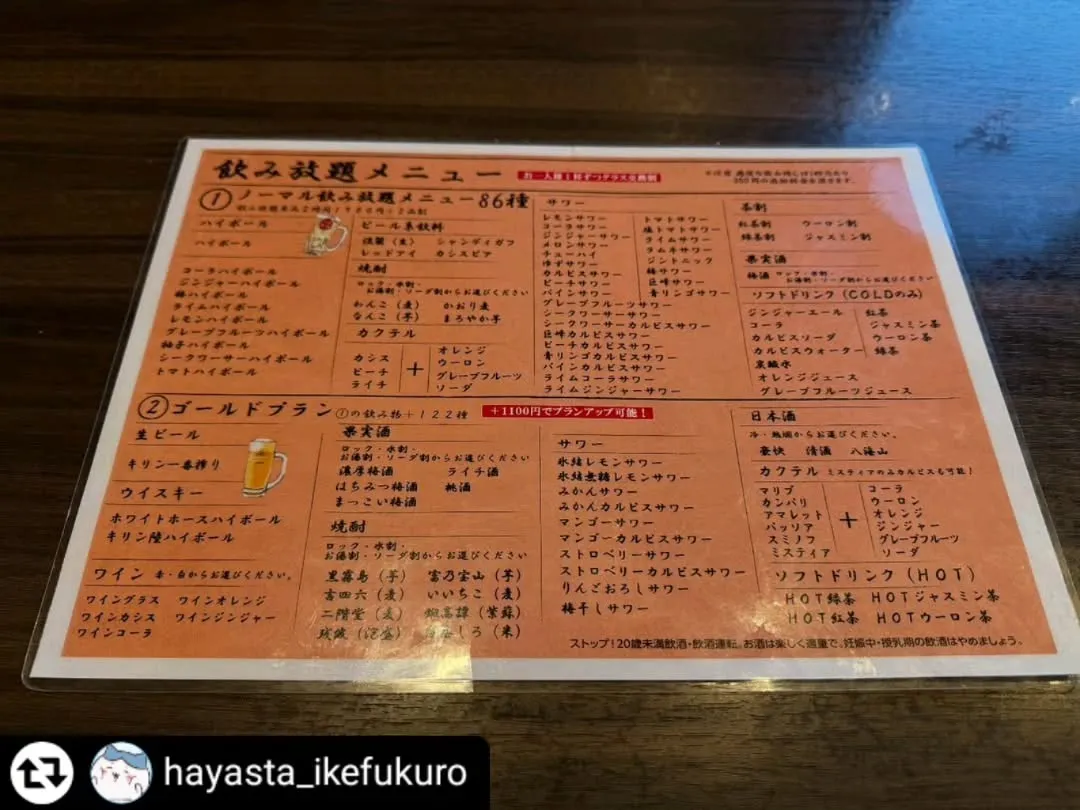 飲み放題メニュー
お一人様1杯ずつグラス交換制
①ノーマル飲み放題メニュー86種
ハイボール
ハイボール
コーラハイボール
ジンジャーハイボール
梅ハイボール
ライムハイボール
レモンハイボール
グレープフルーツハイボール
柚子ハイボール
シークワーサーハイボール
トマトハイボール
ビール系飲料
シャンディガフ
レッドアイ カシスビア
焼酎
ロック・水割・
お湯割・ソーダ割からお選びください
わんこ（麦） かおり麦
なんこ（芋） まろやか芋
カクテル
カシス
ピーチ
ライチ
+
オレンジ
ウーロン
グレープフルーツ
ソーダ
サワー
レモンサワー
コーラサワー
ジンジャーサワー
メロンサワー
チューハイ
ゆずサワー
カルピスサワー
ピーチサワー
パインサワー
グレープフルーツサワー
シークワーサーサワー
シークワーサーカルピスサワー
巨峰カルピスサワー
ピーチカルピスサワー
青リンゴカルピスサワー
パインカルピスサワー
ライムコーラサワー
ライムジンジャーサワー
トマトサワー
塩トマトサワー
ライムサワー
ラムネサワー
ジントニック
梅サワー
巨峰サワー
青リンゴサワー
茶割
紅茶割 ウーロン割
緑茶割 ジャスミン割
果実酒
梅酒 ロック・水割・
お湯割・ソーダ割からお選びください
ソフトドリンク（COLDのみ）
ジンジャーエール
コーラ
カルピスソーダ
カルピスウォーター
炭酸水
オレンジジュース
グレープフルーツジュース
紅茶
ジャスミン茶
ウーロン茶
緑茶
②ゴールドプラン ①の飲み物+122種
+1100円でプランアップ可能！
生ビール
キリン一番搾り
ウイスキー
ホワイトホースハイボール
キリン陸ハイボール
ワイン 赤・白からお選びください。
ワイングラス ワインオレンジ
ワインカシス ワインジンジャー
ワインコーラ
果実酒
ロック・水割・
お湯割・ソーダ割からお選びください
濃厚梅酒 ライチ酒
はちみつ梅酒 桃酒
まっこい梅酒
焼酎
ロック・水割・
お湯割・ソーダ割からお選びください
黒霧島（芋） 富乃宝山（芋）
吉四六（麦） いいちこ（麦）
二階堂（麦） 鍛高譚（紫蘇）
（泡盛） しろ（米）
サワー
氷結レモンサワー
氷結無糖レモンサワー
みかんサワー
みかんカルピスサワー
マンゴーサワー
マンゴーカルピスサワー
ストロベリーサワー
ストロベリーカルピスサワー
りんごおろしサワー
梅干しサワー
日本酒
冷・熱燗からお選びください。
豪快 清酒 八海山
カクテル ミスティアのみカルピスも可能！
マリブ
カンパリ
アマレット
パッソア
スミノフ
ミスティア
+
コーラ
ウーロン
オレンジ
ジンジャー
グレープフルーツ
ソーダ
ソフトドリンク（HOT）
HOT緑茶 HOTジャスミン茶
HOT紅茶 HOTウーロン茶
ストップ！20歳未満飲酒・飲酒運転。お酒は楽しく適量で、妊娠中・授乳期の飲酒はやめましょう。
hayasta_ikefukuro